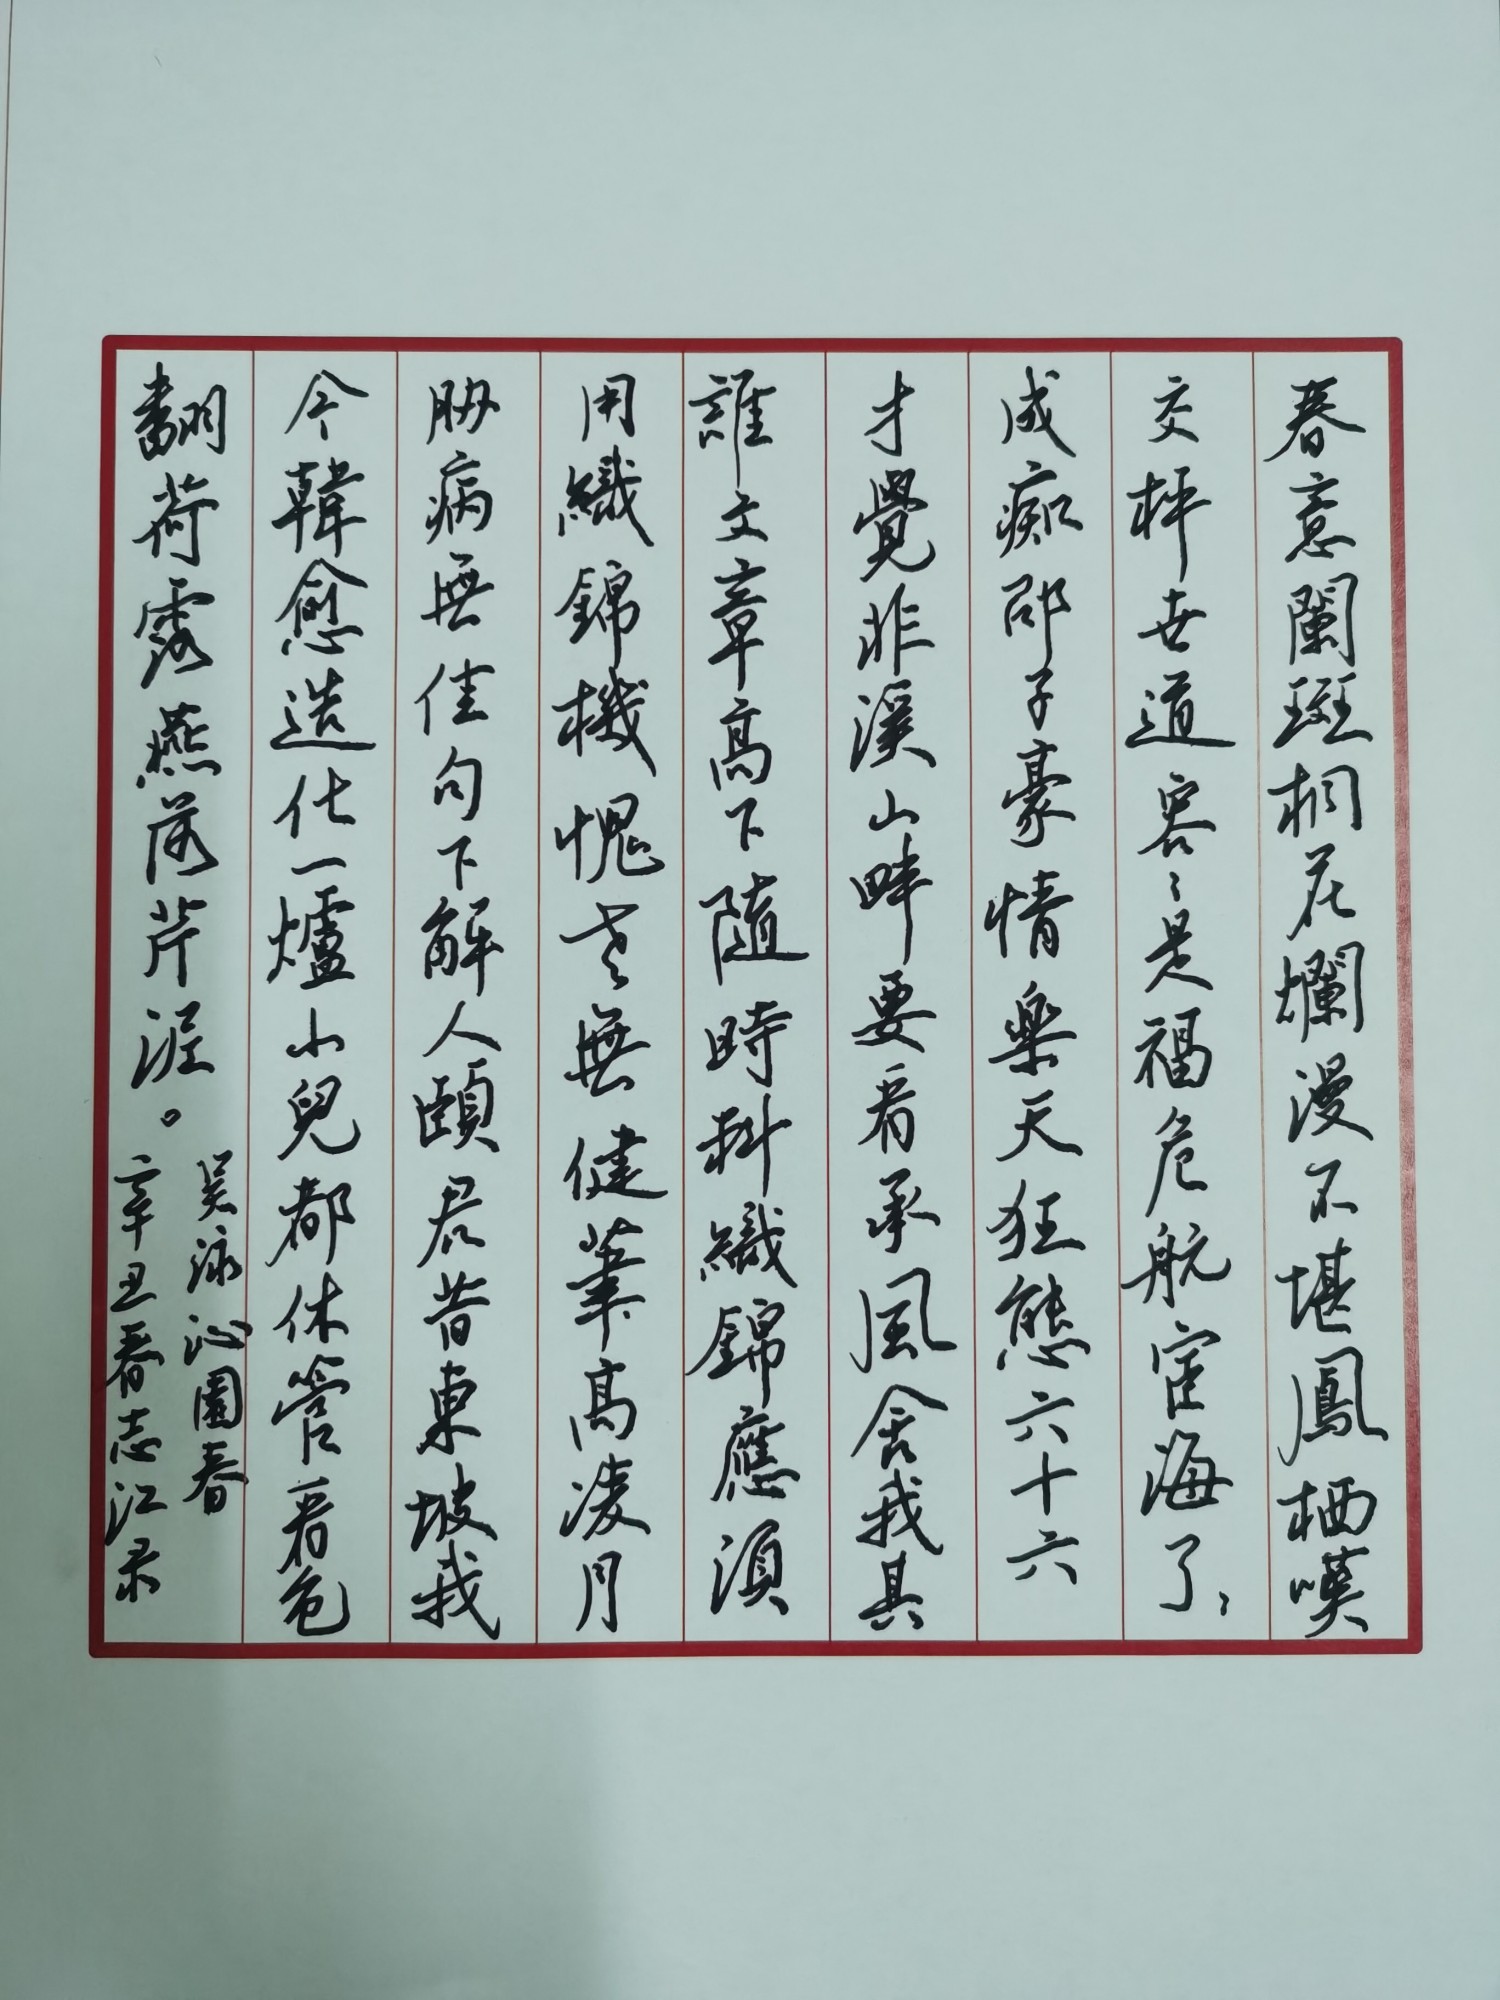 春意闌斑桐花爛漫不堪鳳栖嘆
交枰世道容々是福危航宦海了々
成癡邵子豪情樂天狂態六十六
才覺非溪山畔要看承風舍我其
誰文章高下隨時料織錦應須
用織錦機愧老無健筆高凌月
脅病無佳句下解人頤君昔東坡我
今韓愈造化一爐小兒都休管看龟
翻荷露燕落芹泥。
吳泳沁園春
辛丑春志江录